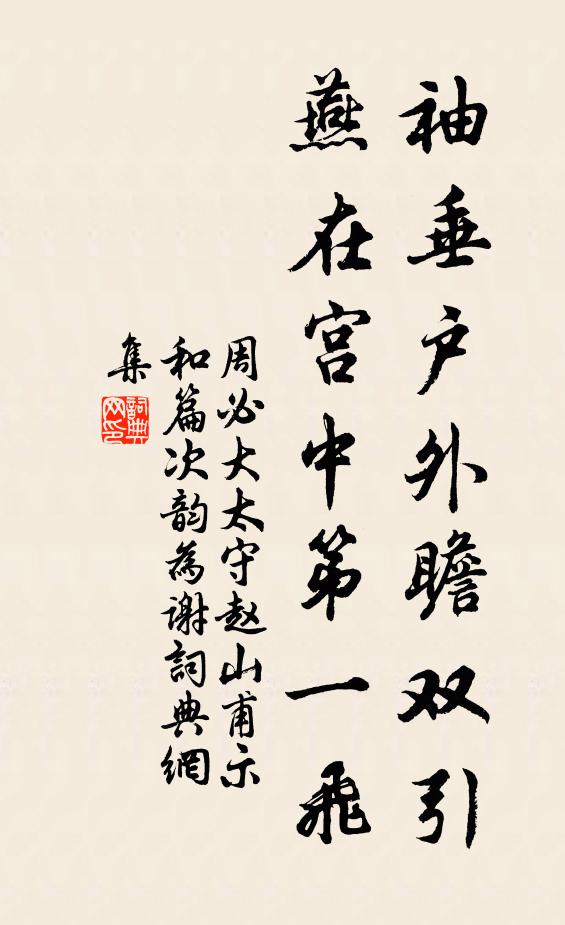 袖垂户外瞻双引
燕在宫中第一飛
周必大太守赵山甫示
和篇次韵為谢詞典網
集
詞典
网印